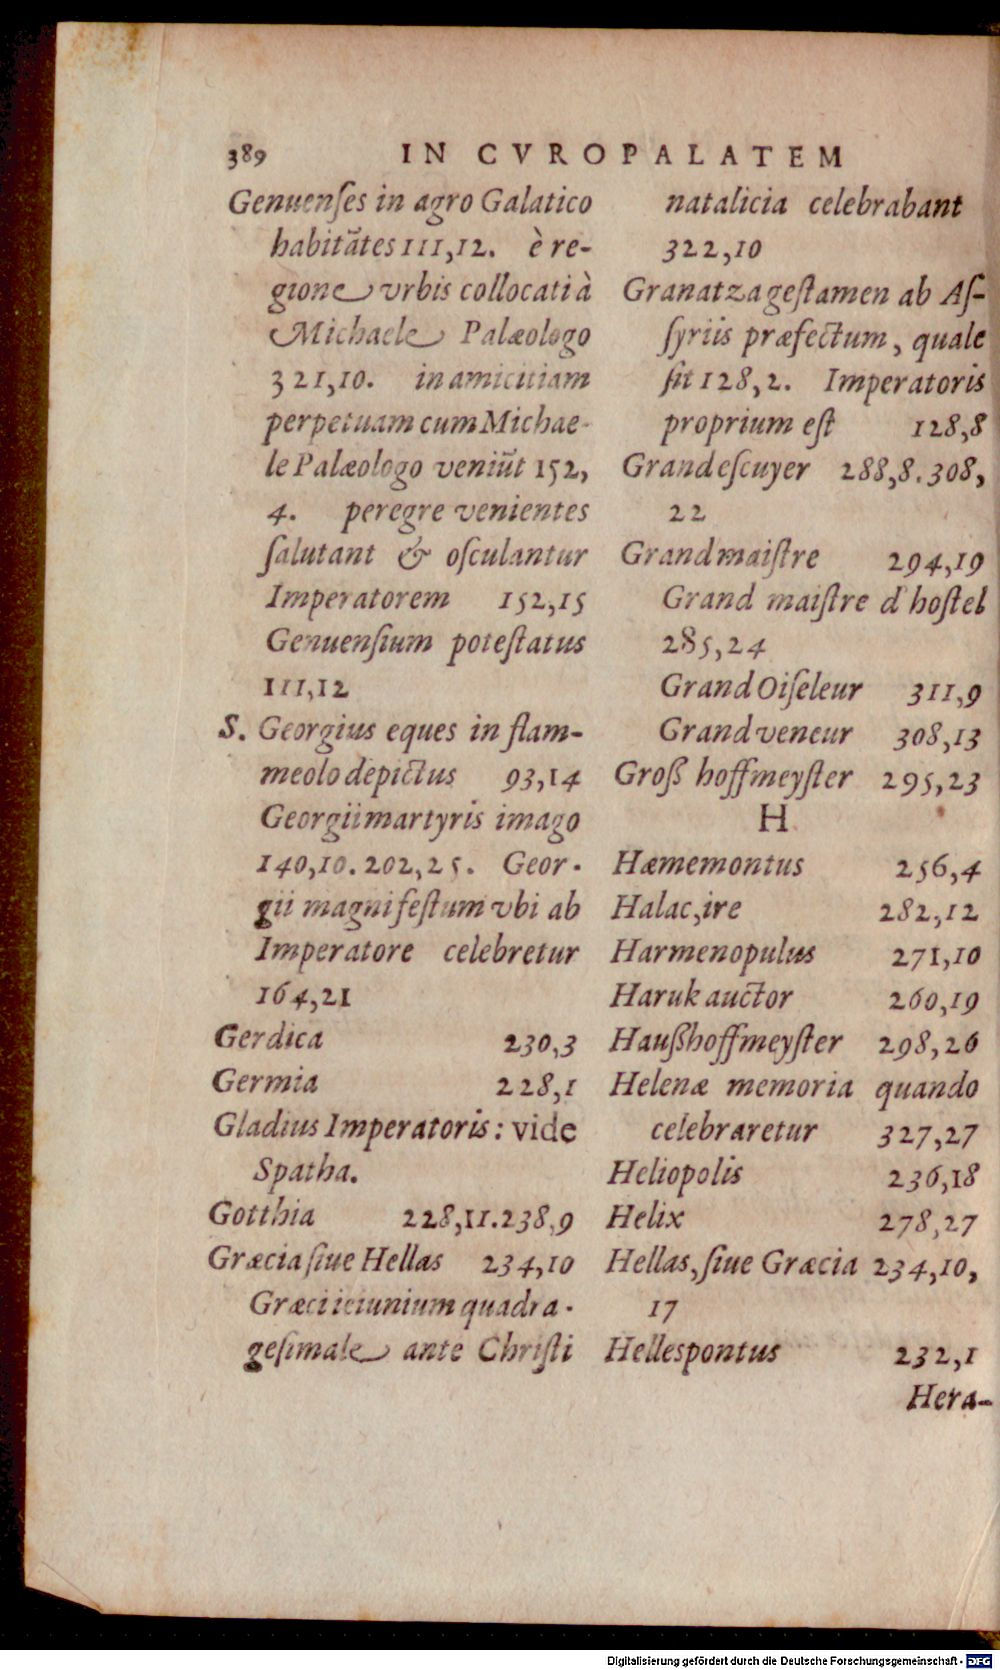 389 IN CVROPALATEM
Genuenſes in agro Galatico
habitãtes 111,12. è re-
gione vrbis collocati à
Michaele Palæologo
321,10. in amicitiam
perpetuam cum Michae-
le Palæologo veniũt 152,
4. peregre venientes
ſalutant & oſculantur
Imperatorem 152,15
Genuenſium poteſtatus
111,12
S. Georgius eques in flam-
meolo depictus 93,14
Georgii martyris imago
140,10. 202,25. Geor-
gii magni feſtum vbi ab
Imperatore celebretur
164,21
Gerdica 230,3
Germia 228,1
Gladius Imperatoris: vide
Spatha.
Gotthia 228,11.238,9
Græcia ſiue Hellas 234,10
Græci ieiunium quadra-
geſimale ante Chriſti
natalicia celebrabant
322,10
Granatza geſtamen ab Aſ-
ſyriis præfectum, quale
ſit 128,2. Imperatoris
proprium eſt 128,8
Grandeſcuyer 288,8.308,
22
Grand maiſtre 294,19
Grand maiſtre d'hoſtel
285,24
Grand Oiſeleur 311,9
Grand veneur 308,13
Groß hoffmeyſter 295,23
H
Hæmemontus 256,4
Halac,ire 282,12
Harmenopulus 271,10
Haruk auctor 260,19
Haußhoffmeyſter 298,26
Helenæ memoria quando
celebraretur 327,27
Heliopolis 236,18
Helix 278,27
Hellas, ſiue Græcia 234,10,
17
Hellespontus 232,1
Hera-
Digitalisierung gefördert durch die Deutsche Forschungsgemeinschaft - DFG